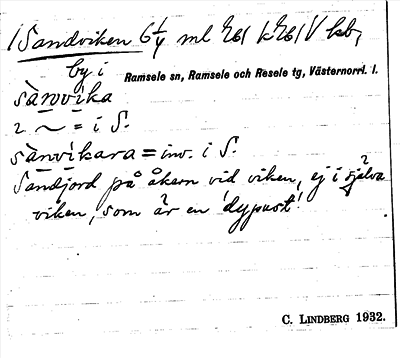 1 Sandviken 6 1/4 ml
by i Ramsele sn, Ramsele och Resele tg, Västernorrl. l.
sànvíka
2 ~ = i S.
sànvíkara = inv. i S.
Sandjord på åkern vid viken, ej i själva
viken, som är en 'dypust'
C. LINDBERG 1932.